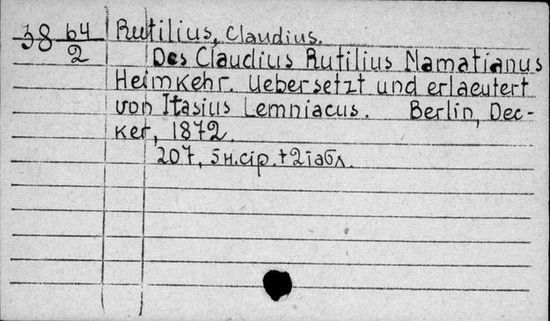 38 64/2 Rutilius, Claudius.
Des Claudius Rutilius Namatianus
Heimkehr. Uebersetzt und erlaeutert
von Itasius Lemniacus. Berlin, Dec-
ker, 1872.
207, 5 н.стр. + 2 табл.